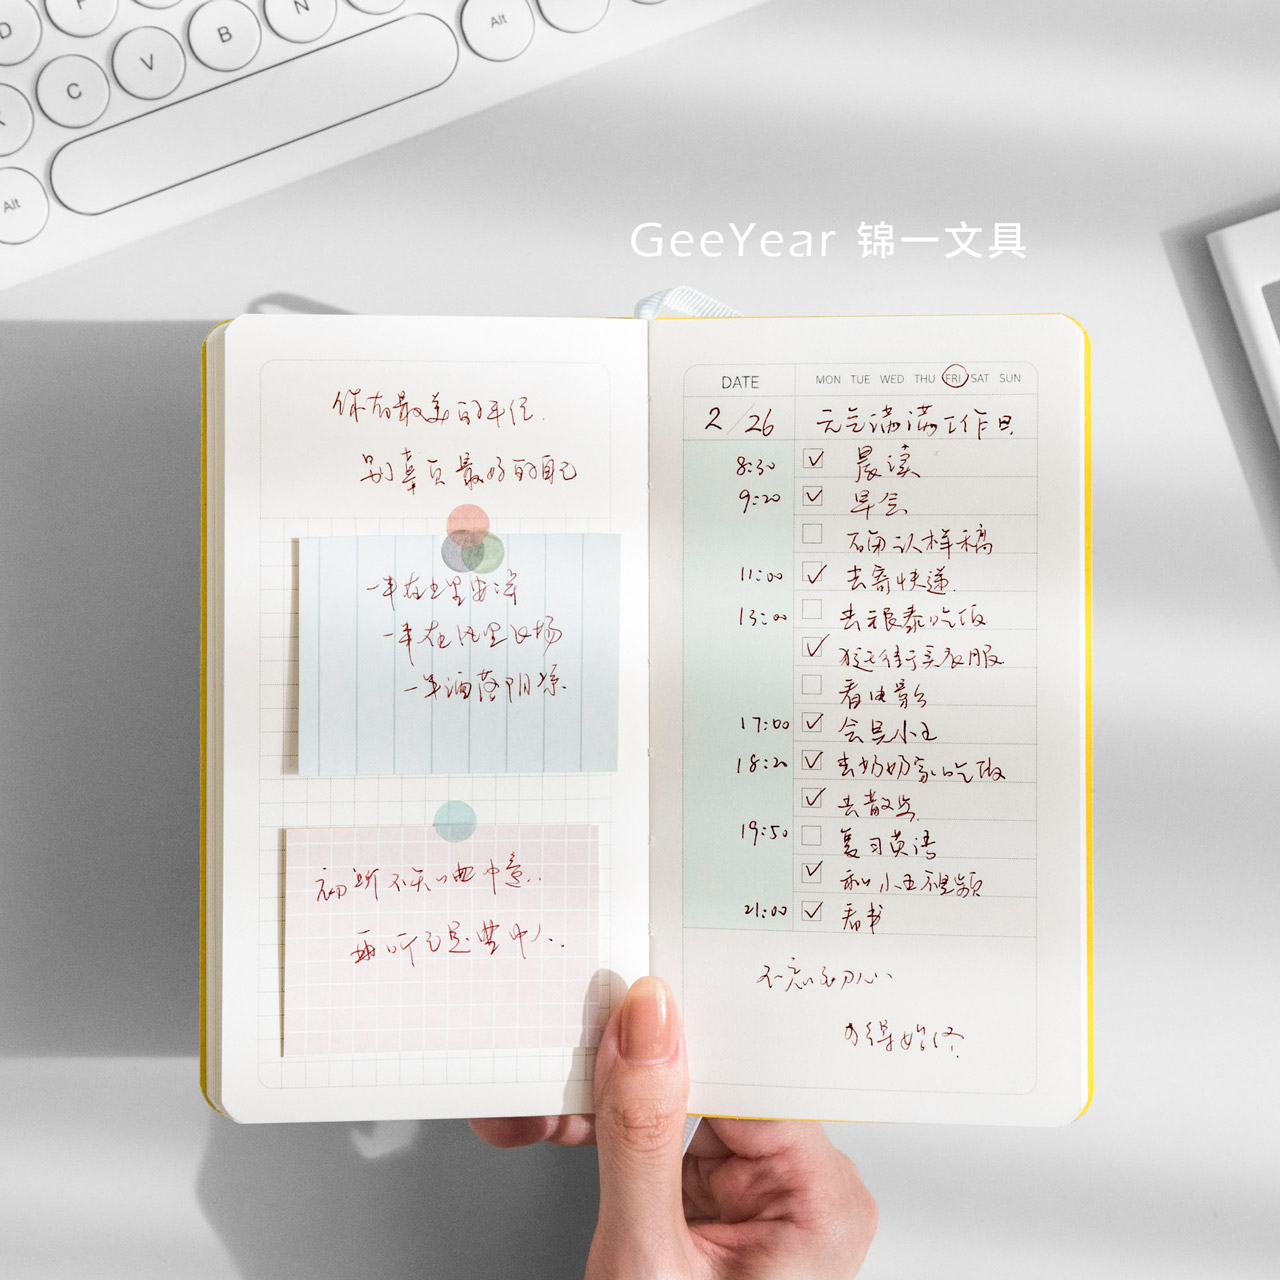 D
C
V
B
N
Alt
Alt
GeeYear 锦一文具
你在最美的年径.
别辜负最好的自己
一半在土里安详
一半在风里飞扬
一半洒落阴凉.
初听不识曲中意..
再听已是曲中人..
DATE MON TUE WED THU FRI SAT SUN
2/26 元气满满工作日
8:30 晨读
9:20 早会
确认样稿
11:00 去寄快递.
13:00 去根泰吃饭
逛街买衣服
看电影
17:00 会见小王
18:20 去奶奶家吃饭
去散步
19:50 复习英语
和小王视频
21:00 看书
不忘初心
方得始终